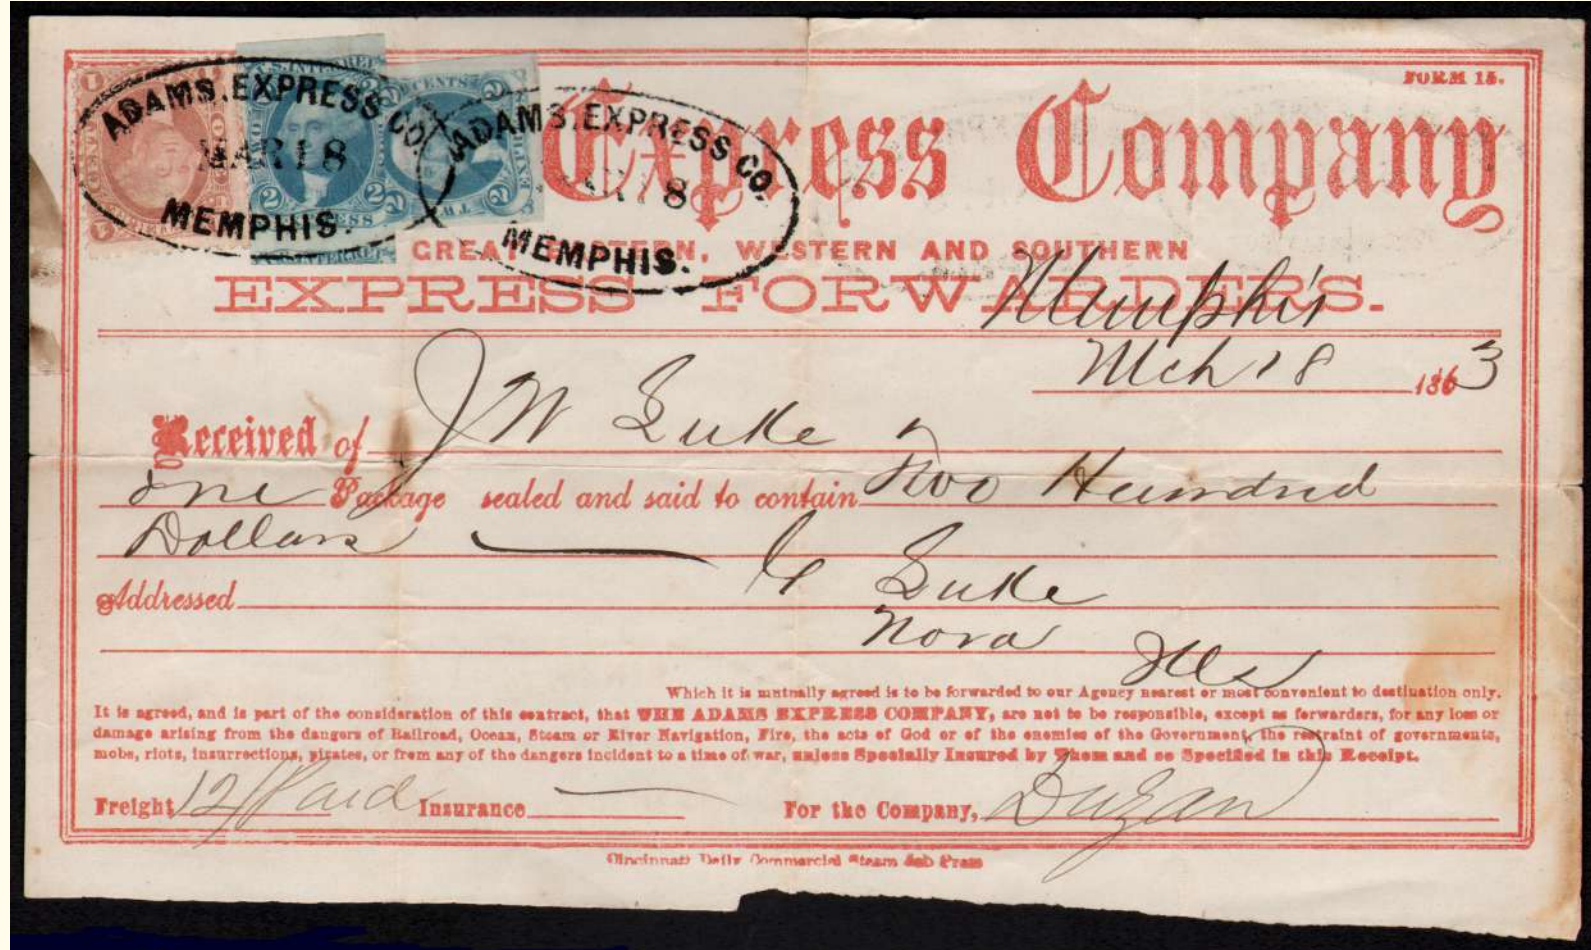 FORM 15.
Express Company
GREAT EASTERN, WESTERN AND SOUTHERN
EXPRESS FORWARDERS.
ADAMS. EXPRESS CO.
MAR 18
MEMPHIS.
ADAMS. EXPRESS CO.
MAR 18
MEMPHIS.
2 EXPRESS 2
CENTS
Memphis
Mch 18 1863
Received of J W Luke
one Package sealed and said to contain Two Hundred
Dollars
C Luke
Addressed
Nora Ills
Which it is mutually agreed is to be forwarded to our Agency nearest or most convenient to destination only.
It is agreed, and is part of the consideration of this contract, that THE ADAMS EXPRESS COMPANY, are not to be responsible, except as forwarders, for any loss or
damage arising from the dangers of Railroad, Ocean, Steam or River Navigation, Fire, the acts of God or of the enemies of the Government, the restraint of governments,
mobs, riots, insurrections, pirates, or from any of the dangers incident to a time of war, unless Specially Insured by Them and so Specified in this Receipt.
Freight 12/Paid Insurance For the Company, Duzan
Cincinnati Daily Commercial Steam Job Press